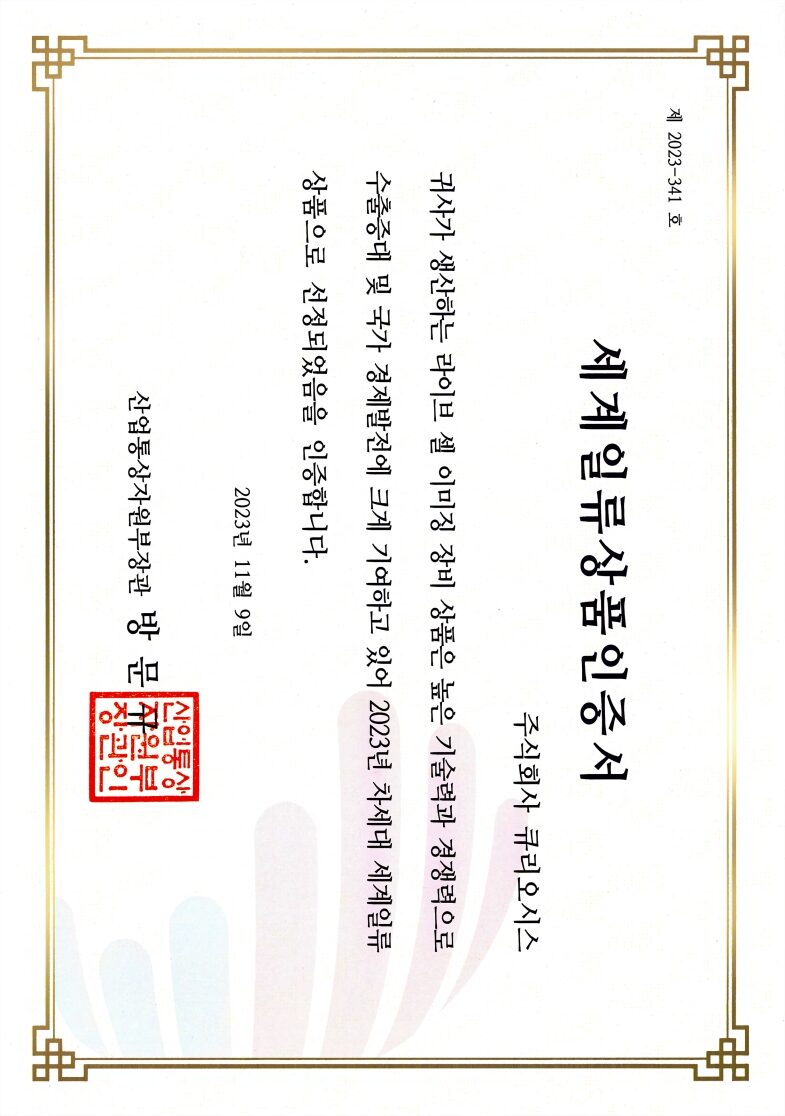 제 2023-341 호
세계일류상품인증서
주식회사 큐리오시스
귀사가 생산하는 라이브 셀 이미징 장비 상품은 높은 기술력과 경쟁력으로
수출증대 및 국가 경제발전에 크게 기여하고 있어 2023년 차세대 세계일류
상품으로 선정되었음을 인증합니다.
2023년 11월 9일
산업통상자원부장관 방 문 규
산업통상
자원부
장관인